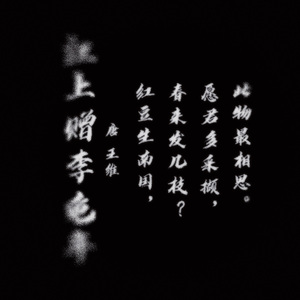 江上赠李龟年
唐 王维
红豆生南国，
春来发几枝？
愿君多采撷，
此物最相思。